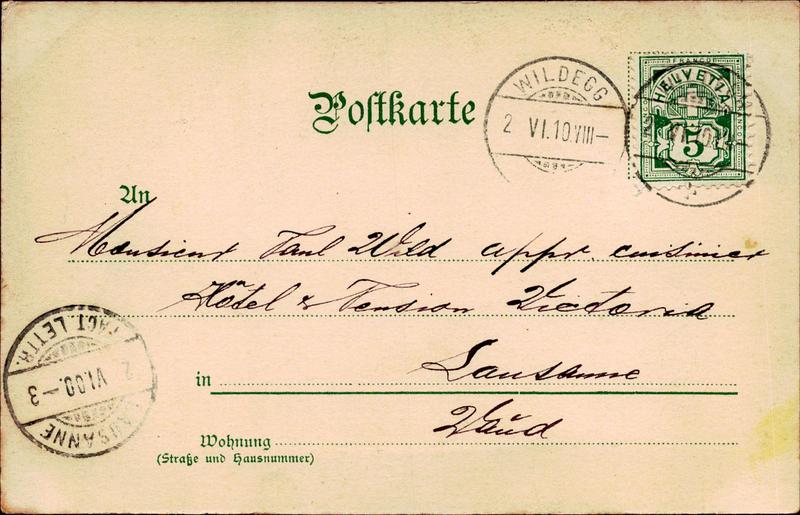 Postkarte
WILDEGG
2 VI.10.VIII–
FRANCO
HELVETIA
5
An
Monsieur Paul Wild appr. cuisinier
Hôtel & Pension Victoria
in Lausanne
Vaud
Wohnung
(Straße und Hausnummer)
FACT. LETTR.
2 VI.00.–3
LAUSANNE